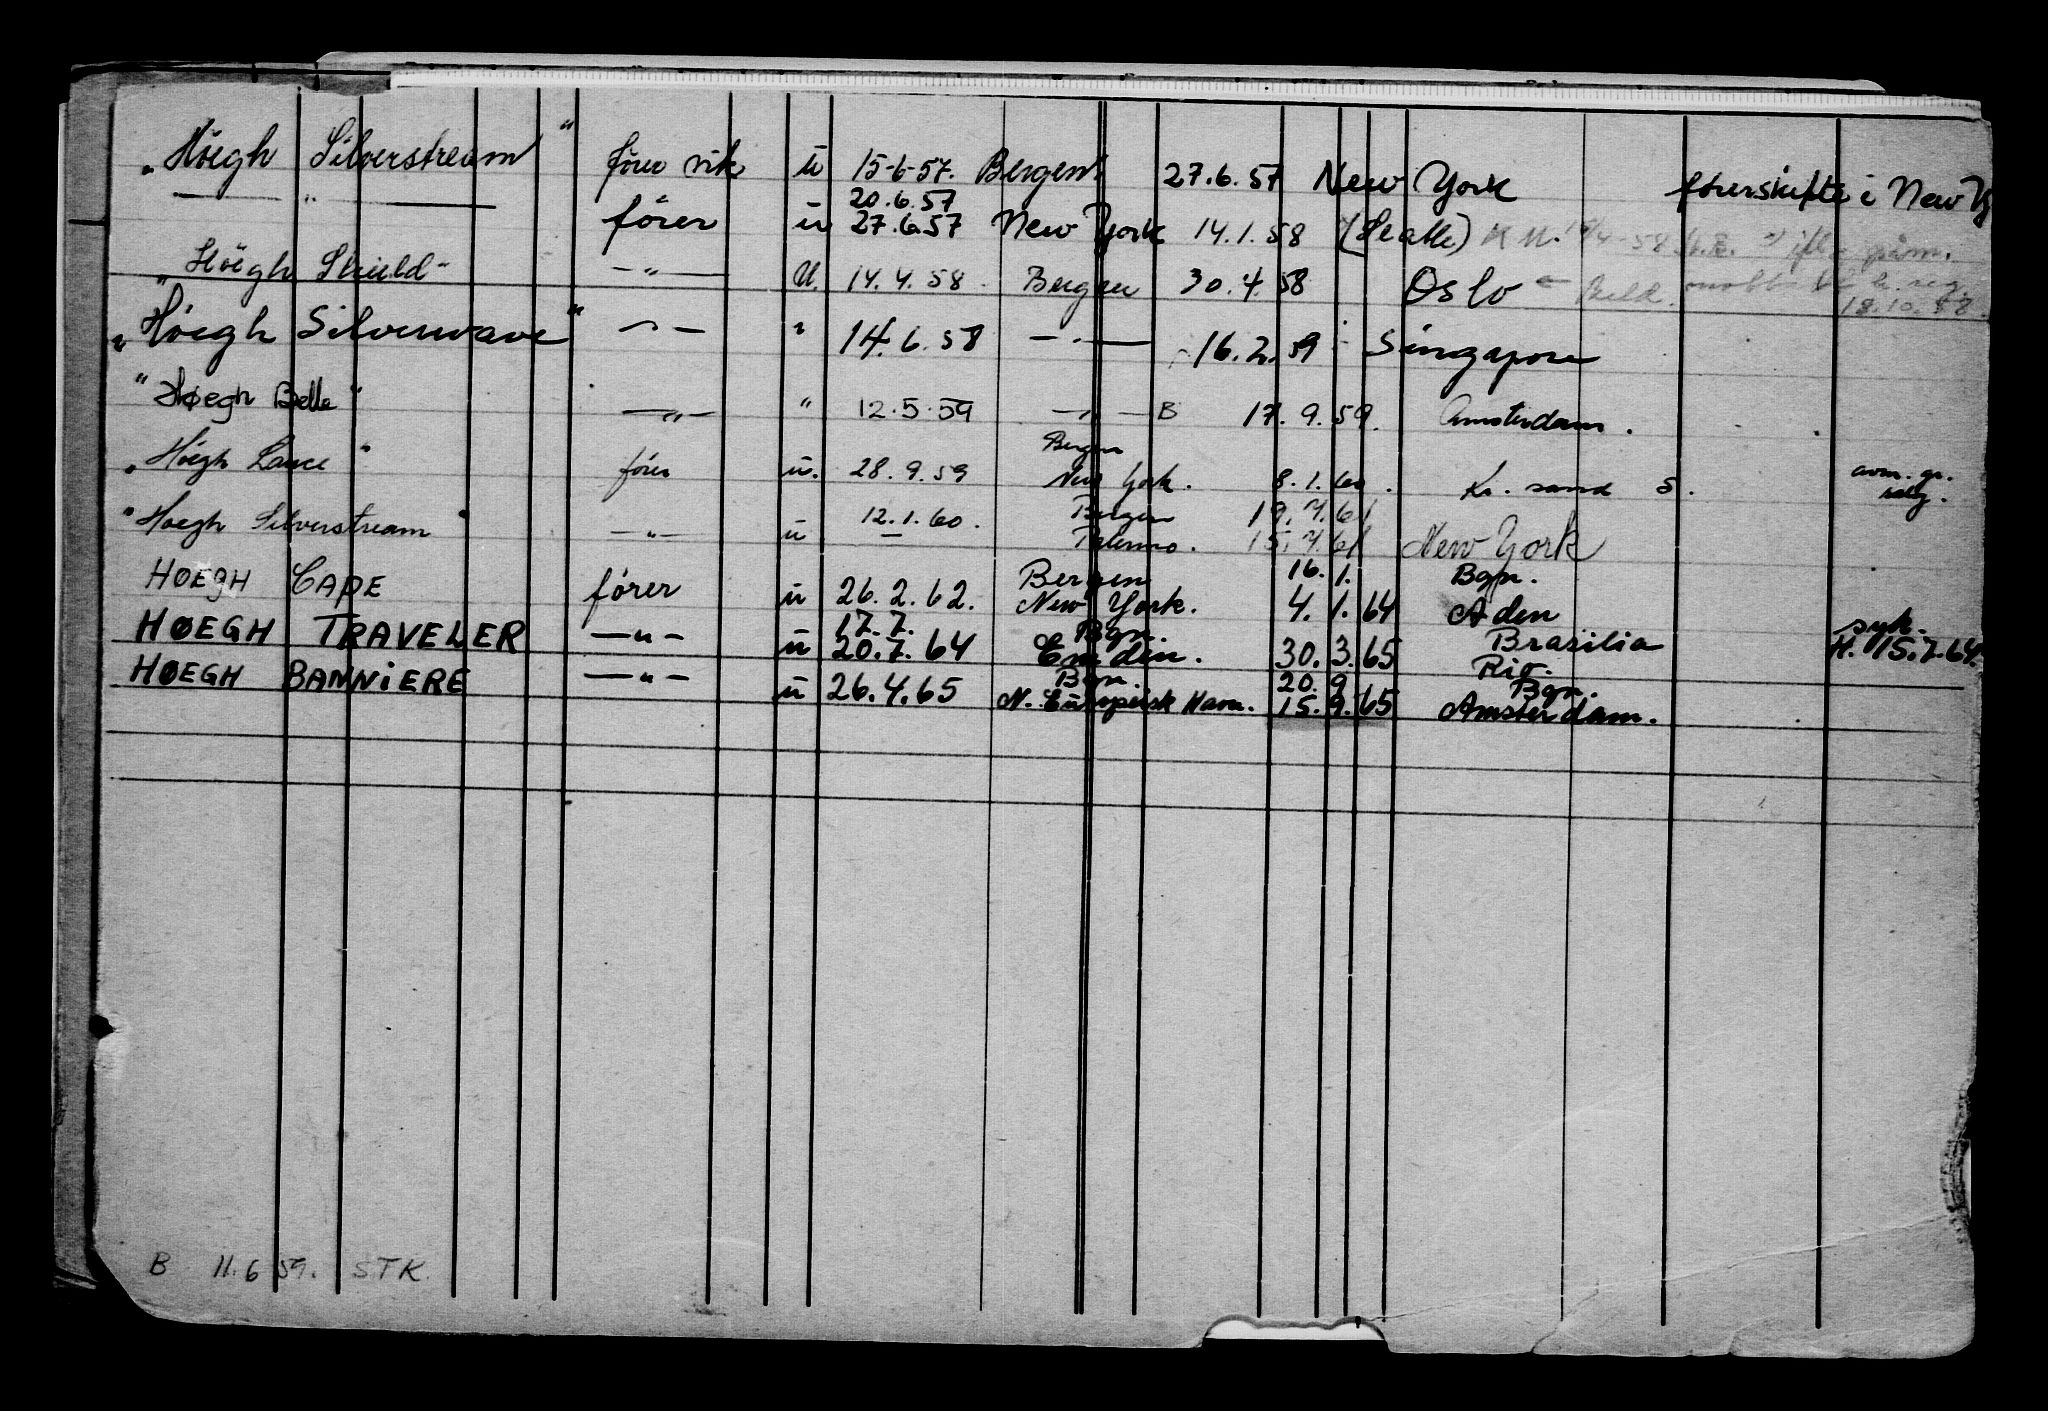 "Høegh Silverstream" fører vik ü 15-6-57. Bergen 27.6.57 New York førerskifte i New Y
— " — 20.6.57
fører ü 27.6.57 New York 14.1.58 (Seatle)
"Høegh Shield" — " — ü. 14.4.58. Bergen 30.4.58 Oslo
18.10.58.
"Høegh Silverwave" — " — " 14.6.58 — " — 16.2.59 Singapore
"Høegh Belle" — " — " 12.5.59 — " — B 17.9.59. Amsterdam.
Bergen
"Høegh Lance" fører ü. 28.9.59 New York. 8.1.60. Kr. sand S. avm. gr. salg.
12.1.60. Bergen 19.7.61
"Høegh Silverstream" — " — ü — Palermo. 15.7.61 New York
Bergen 16.1. Bgn.
HØEGH CAPE fører ü 26.2.62. New York. 4.1.64 Aden
17.7. Bgn. Brasilia syk.
HØEGH TRAVELER — " — ü 20.7.64 Emden. 30.3.65 Rio. H. 15.7.64.
Bgn. 20.9 Bgn.
HØEGH BANNIERE — " — ü 26.4.65 N. Europeisk Havn. 15.9.65 Amsterdam.
B 11.6 59. STK.